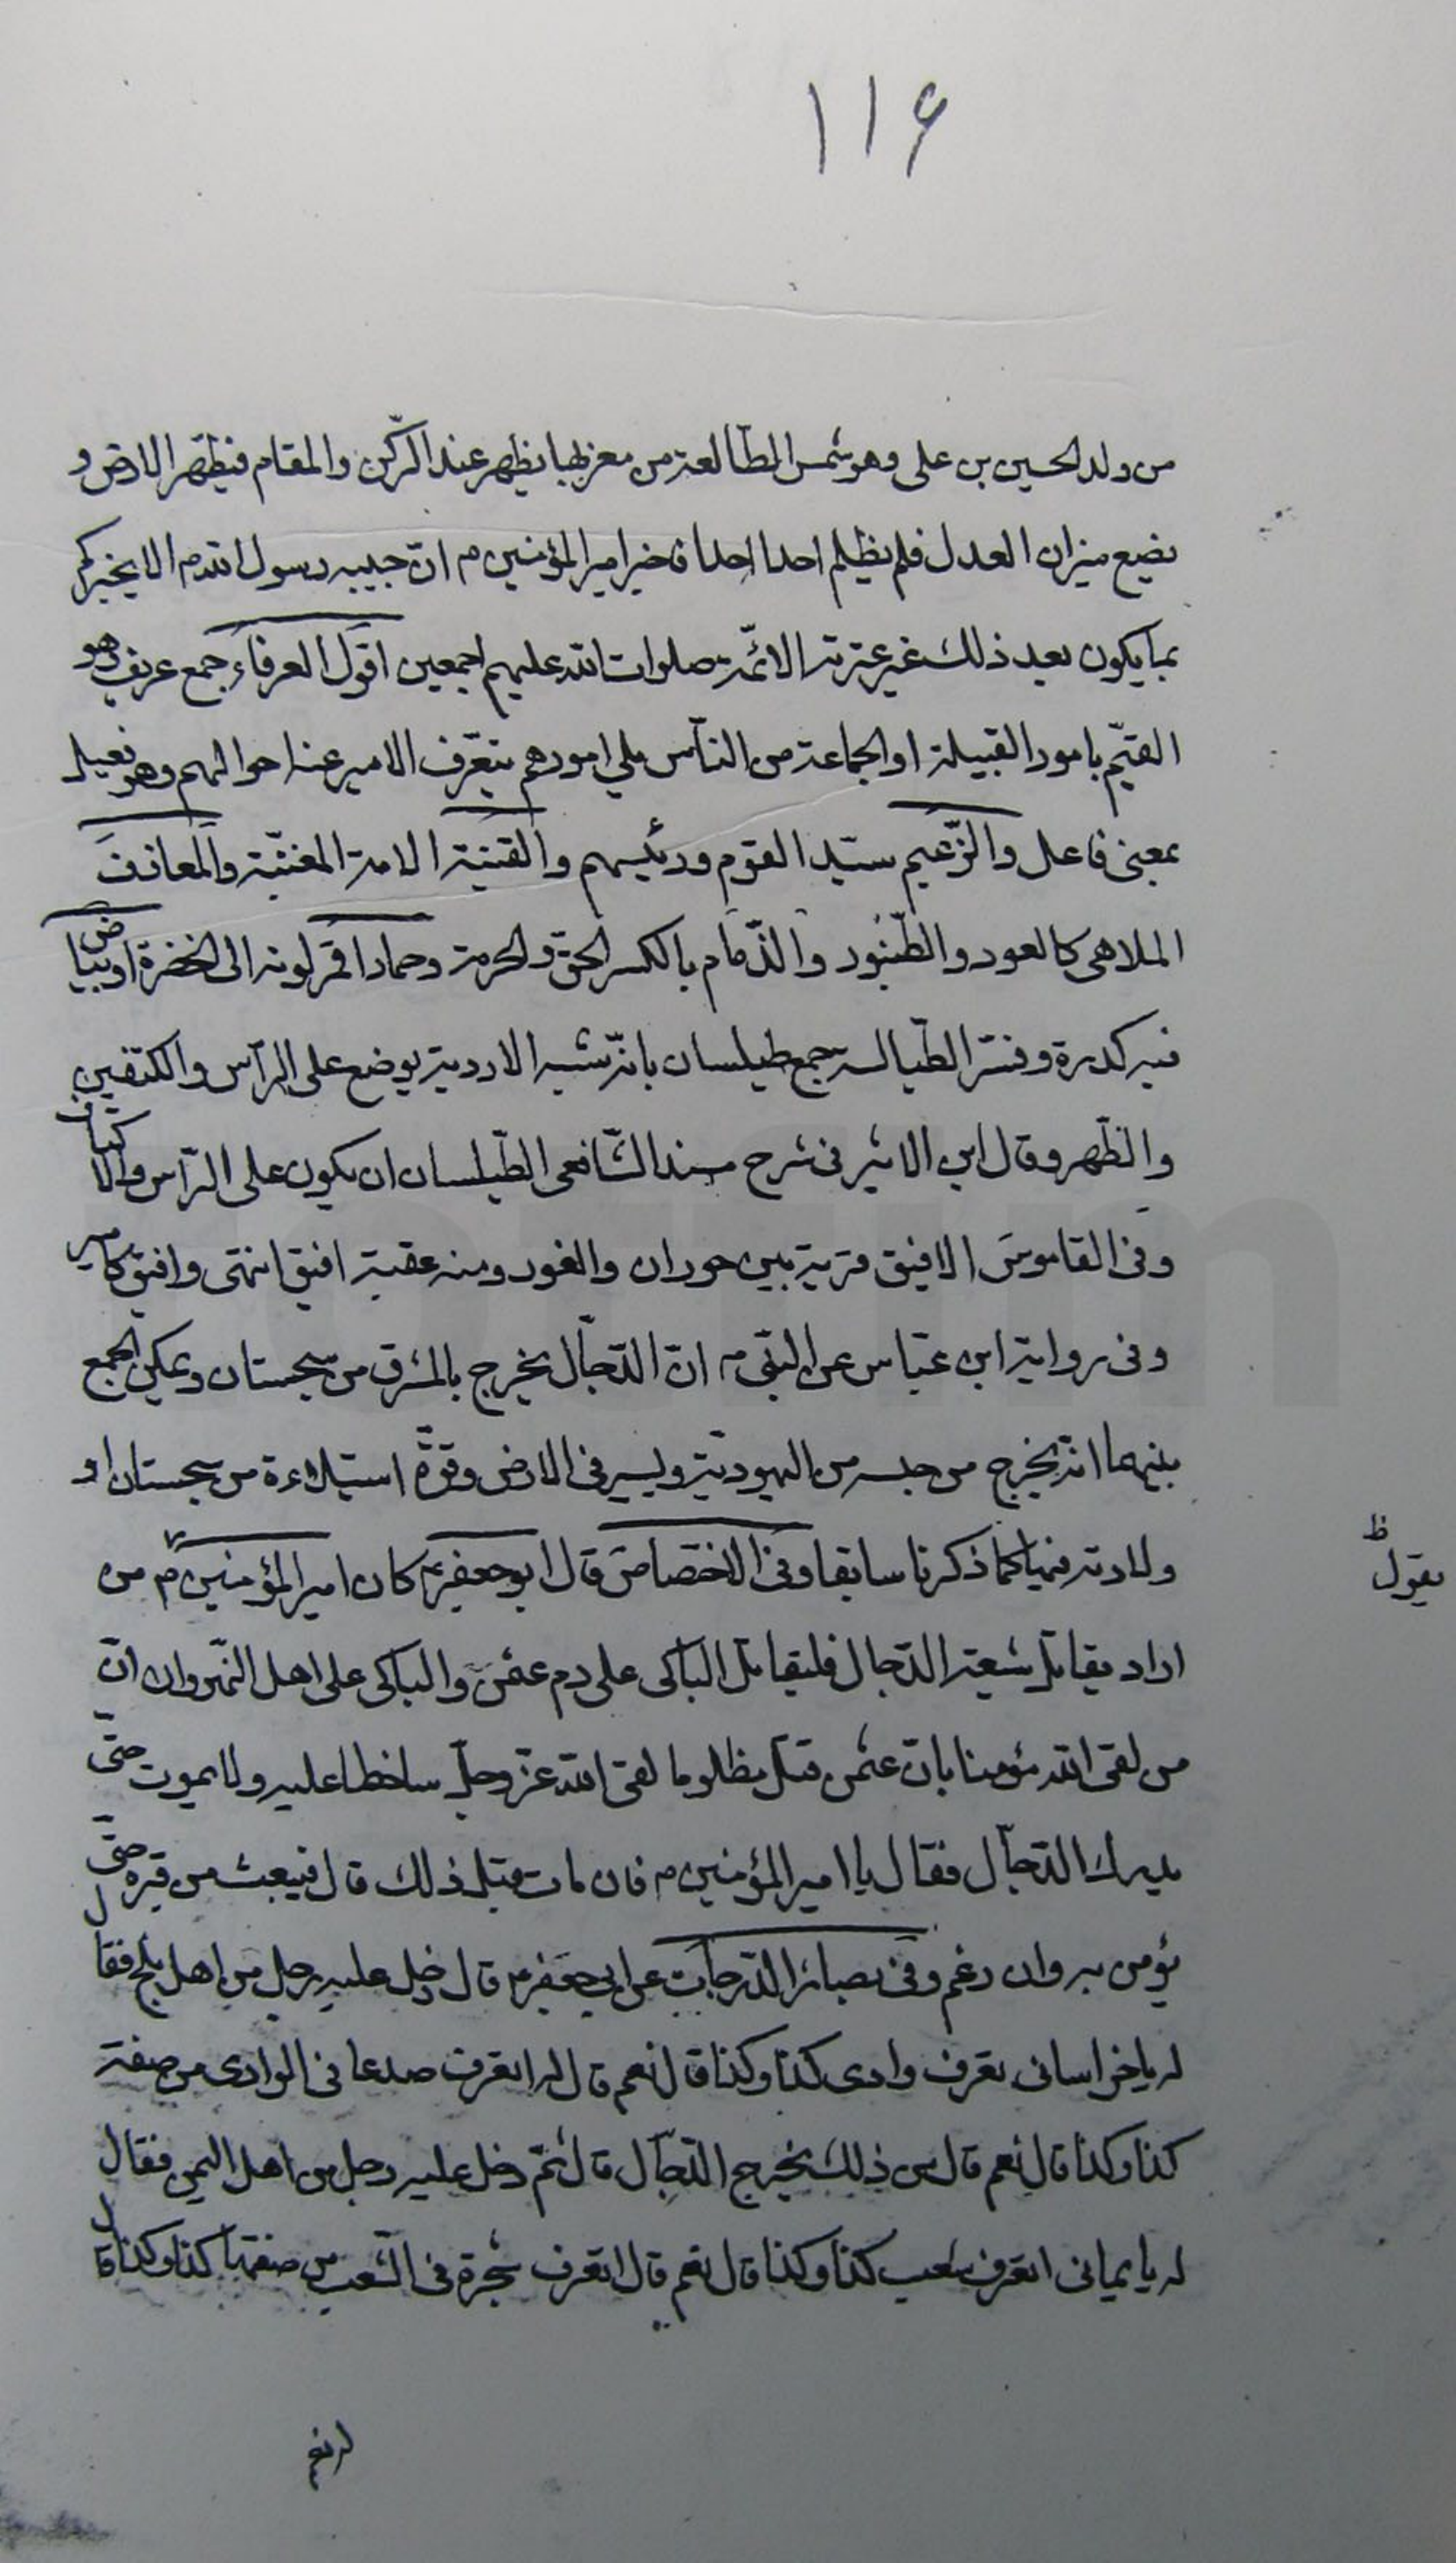 ۱۱۶
من ولد الحسين بن على وهو شمس الطالعة من مغربها يظهر عند الركن والمقام فيطهر الارض و
يضيع ميزان العدل فلم يظلم احدا احدا فاخبر امير المؤمنين م ان حبيبه رسول الله م الا يخبركم
بما يكون بعد ذلك غير عترته الائمّة صلوات الله عليهم اجمعين اقول العرفاء جمع عريف وهو
القيّم بامور القبيلة او الجماعة من النّاس يلي امورهم يتعرّف الامير عنه احوالهم وهو فعيل
بمعنى فاعل والزّعيم سيّد القوم ورئيسهم والقينة الامة المغنيّة والمعازف
الملاهى كالعود والطّنبور والذّمام بالكسر الحق والحرمة وحمار اقمر لونه الى الخضرة او بياض
فيه كدرة وفسّر الطّيالسة جمع طيلسان بانّه شبه الاردية يوضع على الرّاس والكتفين
والظّهر وقال ابن الاثير فى شرح مسند الشّافعى الطّيلسان ان يكون على الرّاس والاكتاف
وفى القاموس الافيق قرية بين حوران والغور ومنه عقبة افيق انتهى وافيق كامير
وفى رواية ابن عبّاس عن النّبى م انّ الدّجّال يخرج بالمشرق من سجستان ويمكن الجمع
بينهما انّه يخرج من من اليهوديّة ويسير فى الارض وقوّة استيلاءه من سجستان او
ولادته فيها كما ذكرنا سابقا وفى الاختصاص قال ابو جعفر ع كان امير المؤمنين م من
يقول ظ
اراد يقاتل شيعة الدّجال فليقاتل الباكى على دم عثمن والباكى على اهل النّهروان انّ
من لقى الله مؤمنا بانّ عثمن قتل مظلوما لقى الله عزّ وجلّ ساخطا عليه ولا يموت حتّى
يدرك الدّجّال فقال يا امير المؤمنين م فان مات قبل ذلك قال فيبعث من قبره حتّى
يؤمن به وان رغم وفى بصائر الدّرجات عن ابى جعفر ع قال دخل عليه رجل من اهل بلخ فقال
له يا خراسانى تعرف وادى كذا وكذا قال نعم قال له اتعرف صدعا فى الوادى من صفته
كذا وكذا قال نعم قال من ذلك يخرج الدّجّال قال ثمّ دخل عليه رجل من اهل اليمن فقال
له يا يمانى اتعرف شعب كذا وكذا قال نعم قال اتعرف شجرة فى الشّعب من صفتها كذا وكذا قال
له نعم